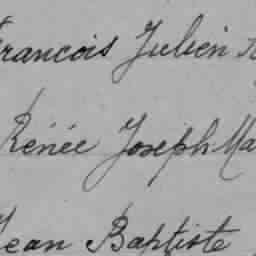 Francois Julien
Rénée Joseph Ma
Jean Baptiste